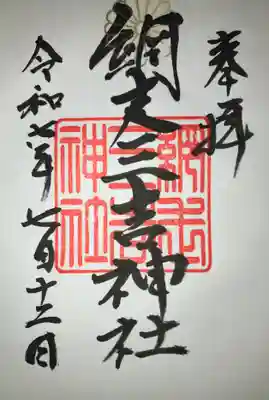 奉拝
網走三吉神社
網走
三吉
神社
令和七年七月十三日